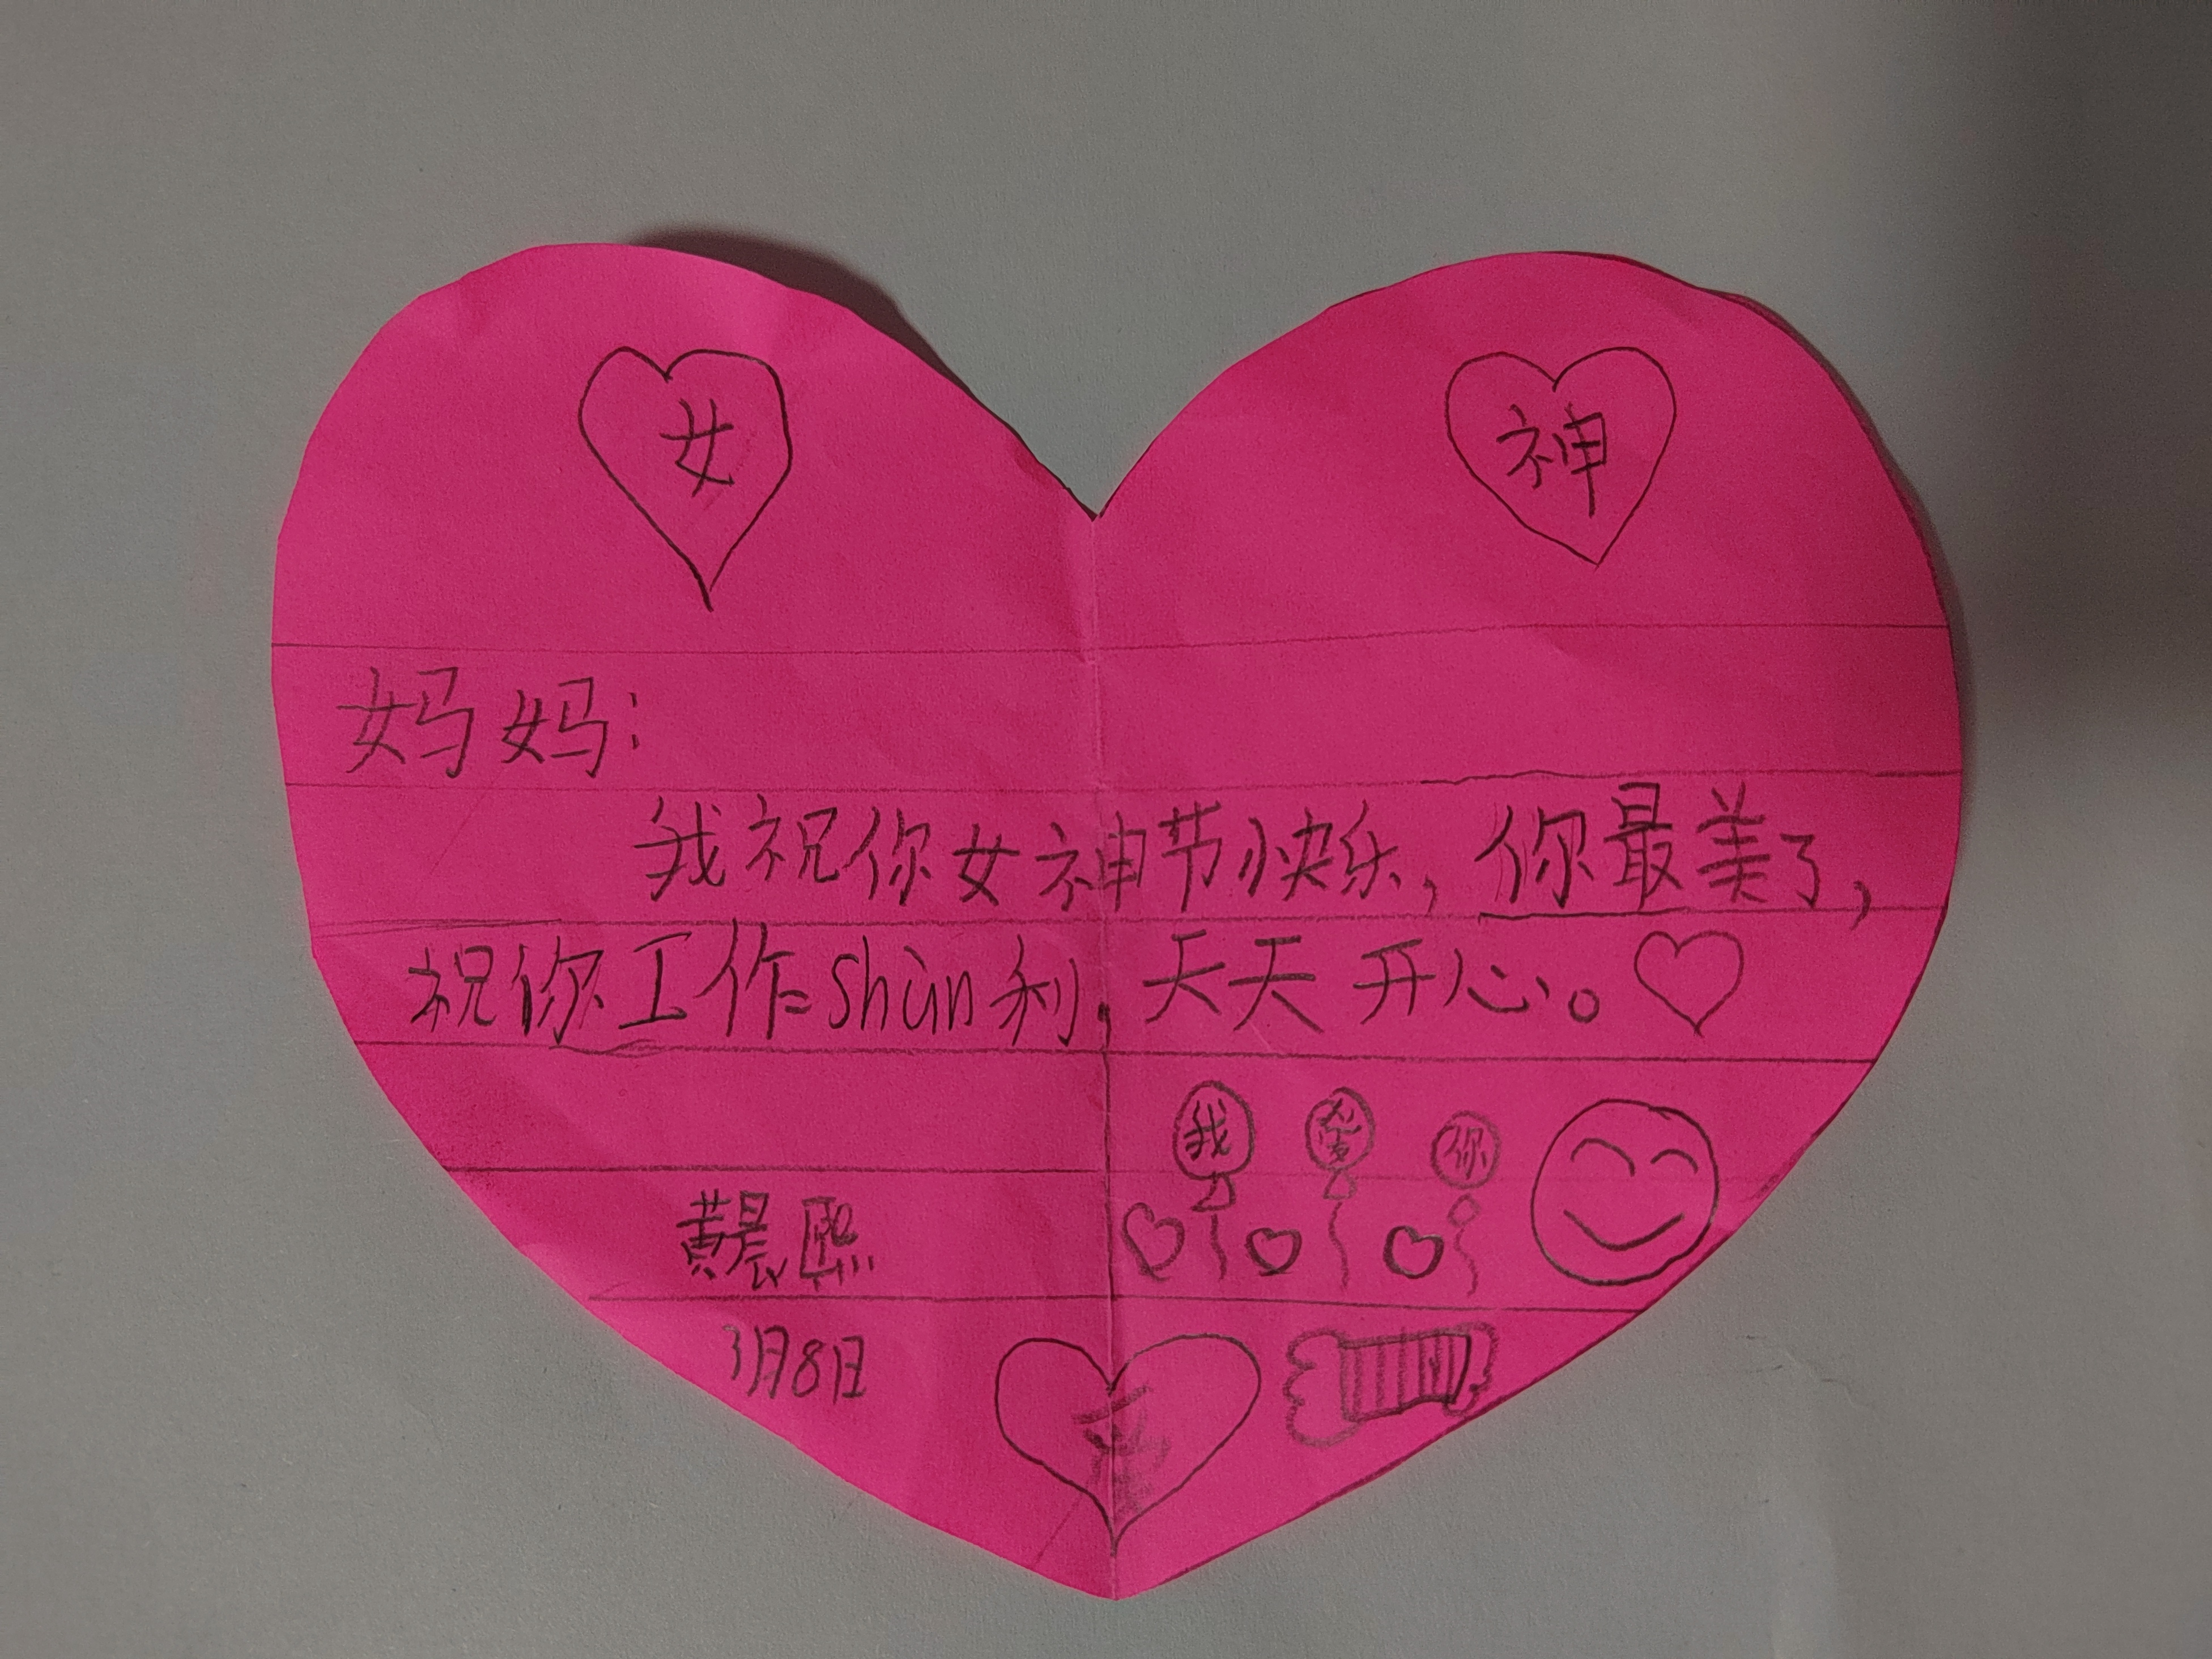 女 神
妈妈:
我祝你女神节快乐，你最美了，
祝你工作shùn利，天天开心。
我 爱 你
黄晨熙
3月8日